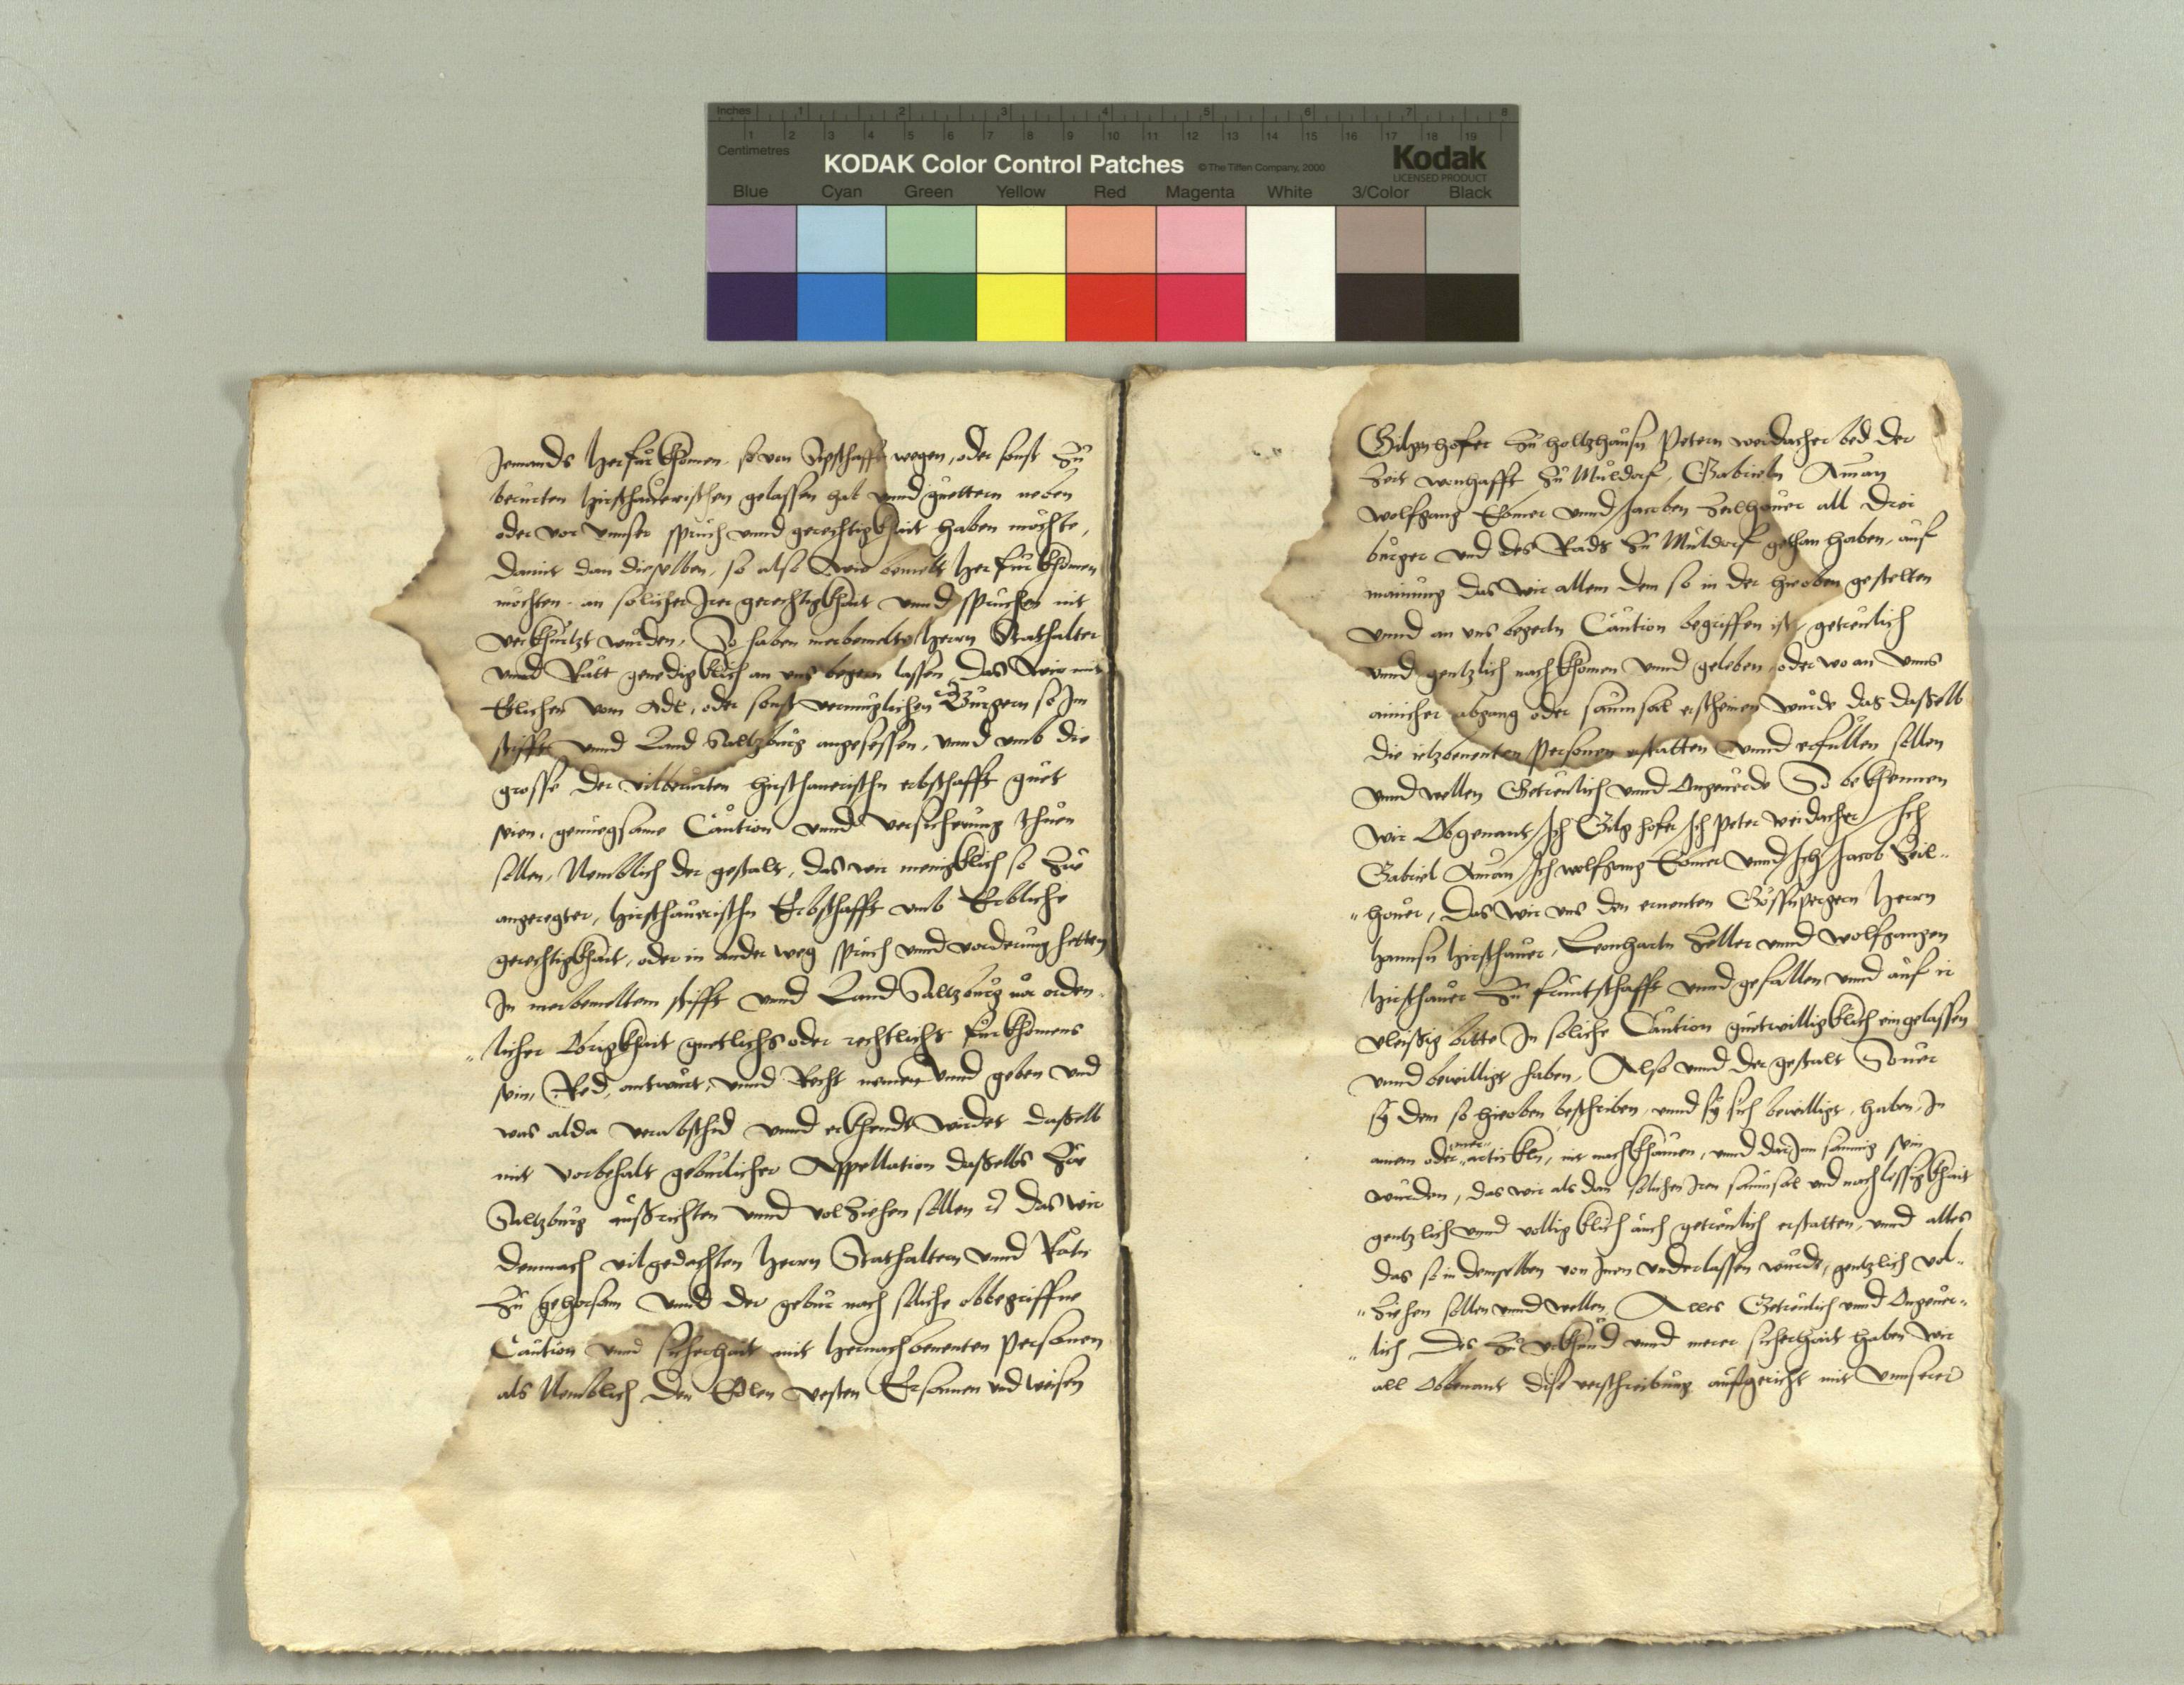 Inches 1 2 3 4 5 6 7 8
1 2 3 4 5 6 7 8 9 10 11 12 13 14 15 16 17 18 19
Centimetres
KODAK Color Control Patches © The Tiffen Company, 2000 Kodak
LICENSED PRODUCT
Blue Cyan Green Yellow Red Magenta White 3/Color Black
Jemands herfür khomen so von Sipschafft wegen, oder sonst zu
berurten hirschauerischen gelassen hab unnd guettern neben
oder vor unnser spruch unnd gerechtigkhait haben möchte,
damit dan dieselben, so also wie bemelt herfür khomen
möchten an solicher Irer gerechtigkhait unnd spruchen nit
verkhürtzt wurden, So haben merbemelte herrn Stathalter
unnd Rätt genedigklich an uns begern lassen, Das wir mit
Etlichen vom Adl, oder sonst vermuglichen Burgern so Im
stifft unnd Land Saltzburg angesessen, unnd umb die
grosse der vilberurten hirschauerischn erbschafft guet
sein, genuegsame Caution unnd versicherung thuen
sollen, Nemblich der gestalt, das wir menigklich so zue
angeregter, hirschauerischn Erbschafft umb Erbliche
gerechtigkhait, oder in ander weg spruch unnd vorderung hetten
In merbemeltem stifft unnd Land Saltzburg vor orden„
„licher Obrigkhait guetlichs oder rechtlichs fürkhomens
sein, Red, antwurt, unnd Recht nemen unnd geben und
was alda verabschid unnd erkhendt wirdet dasselb
mit vorbehalt geburlicher Appellation dasselbs zue
Saltzburg ausrichten unnd volziehen sollen das wir
demnach vilgedachten herrn Stathaltern unnd Rätn
zu gehorsam unnd der gebur nach soliche obbegriffne
Caution unnd sicherhait mit hernachbenenten personen
als Nemblich den Edlen vesten Ersamen und weisen
Gilgn hofer zu holtzhausn Petern weidacher bed der
Zeit wonhafft zu Muldorf, Gabrieln Aman
wolfgang unnd Jacoben Zeilhouer all drei
burger und des Rads zu Muldorf gethan haben, auf
mainung das wir allem dem so in der hieoben gestelten
unnd an uns begertn Caution begriffen ist, getreulich
unnd gentzlich nachkhomen unnd geleben oder wo an unns
ainicher abgang oder saumsal erscheinen wurde das dasselb
die ietzbenenten Personen erstatten unnd erfullen sollen
unnd wellen Getreulich unnd Ongeuerde So bekhennen
wir Obgenant Ich Gilg hofer Ich Peter weidacher Ich
Gabriel Aman Ich wolfgang unnd Ich Jacob Zeil„
„houer, Das wir uns den ernenten herrn
hannsn hirschauer, Leonhartn Zeller unnd wolfgangen
hirschauer zu fruntschafft unnd gefallen unnd auf ir
vleissig bitte In soliche Caution guetwilligklich eingelassen
unnd bewilligt haben, Also unnd der gestalt Souer
sy dem so hieoben beschriben, unnd sy sich bewilligt, haben, In
ainem oder mer artickln, nit nachkhamen, unnd darJnn saumig sein
wurden, das wir als dan solichen Iren saumsal und nachlessigkhait
gentzlich unnd volligklich auch getreulich erstatten, unnd alles
das so in demselben von Inen underlassen wurde, gentzlich vol„
„ziehen sollen unnd wellen Alles Getreulich unnd Ongeuer„
„lich Des zu urkhund unnd merer sicherhait haben wir
all Obbenant dise verschreibung aufgericht mit unnserer